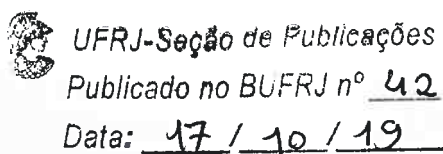 UFRJ-Seção de Publicações
Publicado no BUFRJ nº 42
Data: 17 / 10 / 19